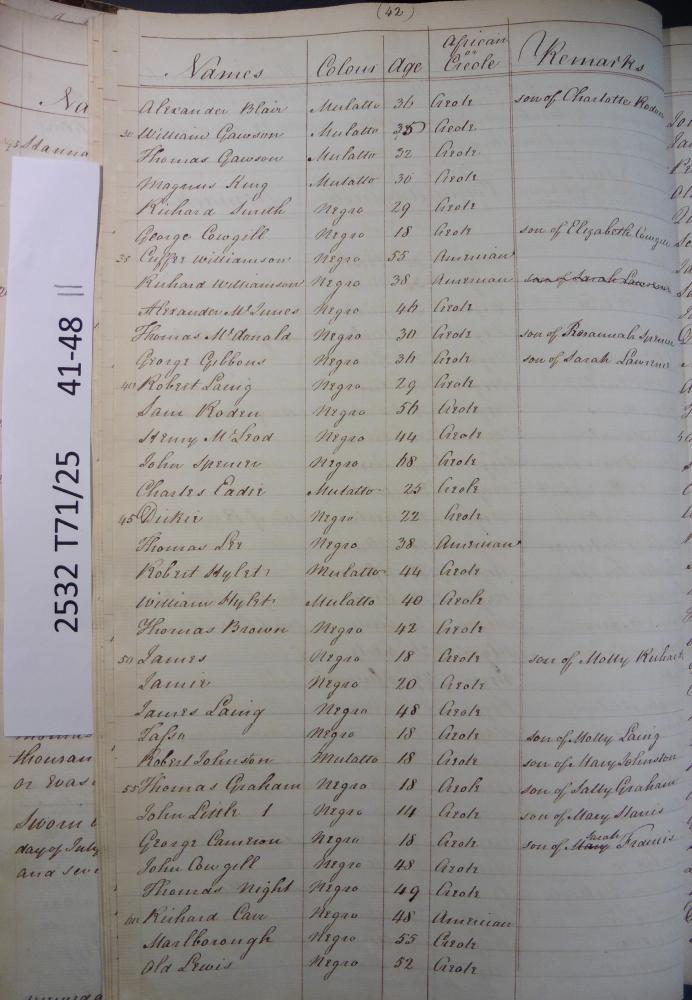 (42)
Names Colour Age African or Creole Remarks
Alexander Blair Mulatto 36 Creole son of Charlotte Roden
30 William Gawson Mulatto 35 Creole
Thomas Gawson Mulatto 32 Creole
Magnus King Mulatto 30 Creole
Richard Smith Negro 29 Creole
George Cowgill Negro 18 Creole son of Elizabeth Cowgill
35 Cuffee Williamson Negro 55 American
Richard Williamson Negro 38 American son of Sarah Lawrence
Alexander McInnes Negro 46 Creole
Thomas McDonald Negro 30 Creole son of Rosannah Spencer
George Gibbons Negro 36 Creole son of Sarah Lawrence
40 Robert Laing Negro 29 Creole
Sam Roden Negro 56 Creole
Henry McLeod Negro 44 Creole
John Spencer Negro 68 Creole
Charles Eadie Mulatto 25 Creole
45 Dickie Negro 22 Creole
Thomas Lee Negro 38 American
Robert Hylet Mulatto 44 Creole
William Hylet Mulatto 40 Creole
Thomas Brown Negro 42 Creole
50 James Negro 18 Creole son of Molly
Jamie Negro 20 Creole
James Laing Negro 48 Creole
Negro 18 Creole son of Molly Laing
Robert Johnson Mulatto 18 Creole son of Mary Johnston
55 Thomas Graham Negro 18 Creole son of Sally Graham
John Little 1 Negro 14 Creole son of Mary
George Cameron Negro 18 Creole son of Mary Sarah Francis
John Cowgill Negro 48 Creole
Thomas Night Negro 49 Creole
60 Richard Carr Negro 48 American
Marlborough Negro 55 Creole
Old Lewis Negro 52 Creole
2532 T71/25 41-48
Na
thousan
or evas
Sworn
day of July
and sev